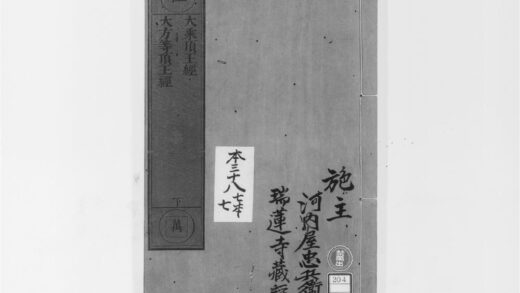 施主
河内屋忠兵衛
瑞蓮寺藏
大乘頂王經
大方等頂王經
下
萬
本三十八
七
204